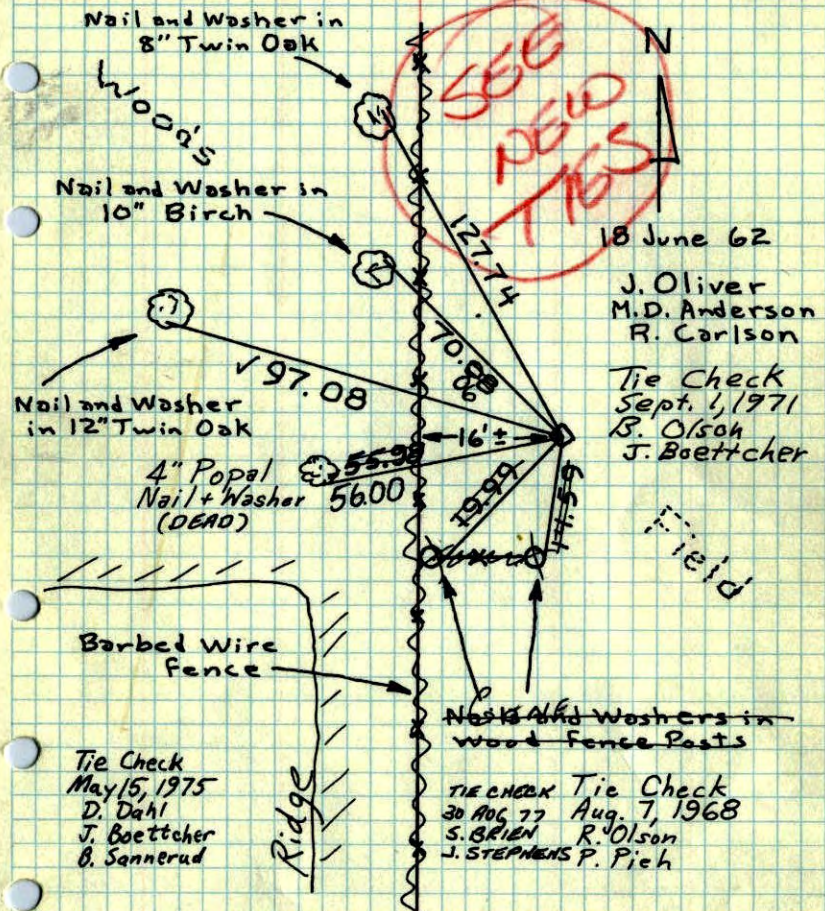 Nail and Washer in
8" Twin Oak
Woods
SEE
NEW
TIES
N
Nail and Washer in
10" Birch
127.74
18 June 62
J. Oliver
M.D. Anderson
R. Carlson
70.88
96
✓97.08
Nail and Washer
in 12" Twin Oak
Tie Check
Sept. 1, 1971
B. Olson
J. Boettcher
16' ±
55.98
56.00
4" Popal
Nail + Washer
(DEAD)
19.99
14.59
Field
Barbed Wire
Fence
Nails and Washers in
Wood Fence Posts
Ridge
Tie Check
May 15, 1975
D. Dahl
J. Boettcher
B. Sannerud
TIE CHECK
30 AUG 77
S. BRIEN
J. STEPHENS
Tie Check
Aug. 7, 1968
R. Olson
P. Pieh